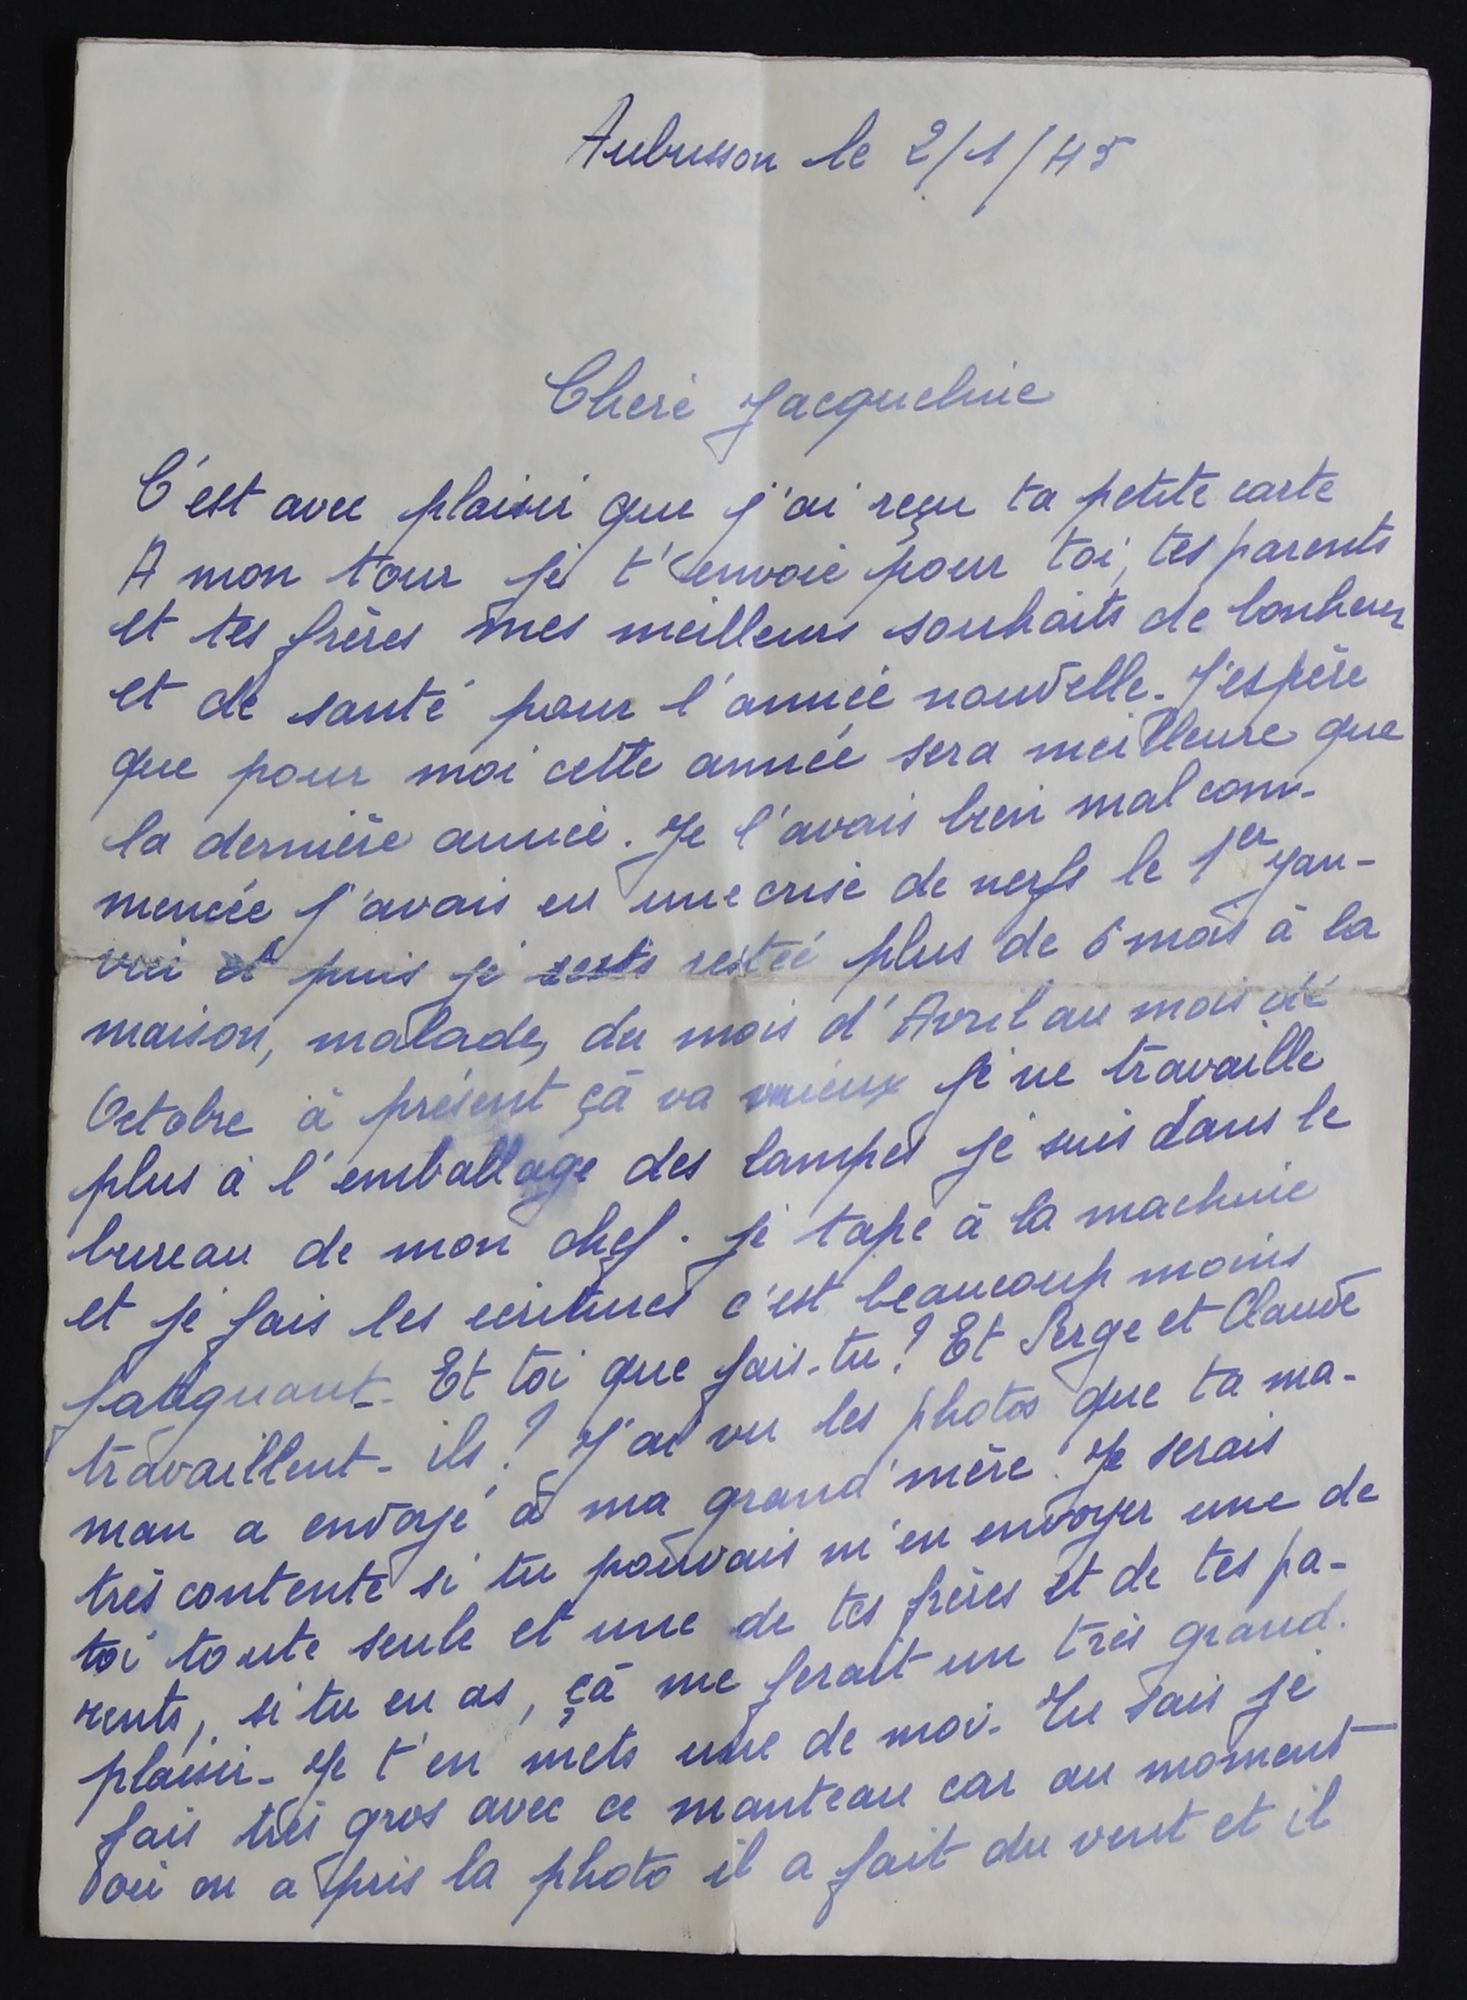 Aubusson le 2/1/45
Chère Jacqueline
C'est avec plaisir que j'ai reçu ta petite carte
A mon tour je t'envoie pour toi, tes parents
et tes frères mes meilleurs souhaits de bonheur
et de santé pour l'année nouvelle. J'espère
que pour moi cette année sera meilleure que
la dernière année. Je l'avais bien mal com-
mencée j'avais eu une crise de nerfs le 1er Jan-
vier et puis je restée plus de 6 mois à la
maison, malade, du mois d'Avril au mois de
Octobre à présent çà va mieux je ne travaille
plus à l'emballage des lampes je suis dans le
bureau de mon chef. je tape à la machine
et je fais les ecritures c'est beaucoup moins
fatiguant. Et toi que fais-tu? Et Serge et Claude
travaillent-ils? J'ai vu les photos que ta ma-
man a envoyé à ma grand'mère. Je serais
très contente si tu pouvais m'en envoyer une de
toi toute seule et une de tes frères et de tes pa-
rents, si tu en as, çà me ferait un très grand.
plaisir. Je t'en mets une de moi. Tu sais je
fais très gros avec ce manteau car au moment
où on a pris la photo il a fait du vent et il